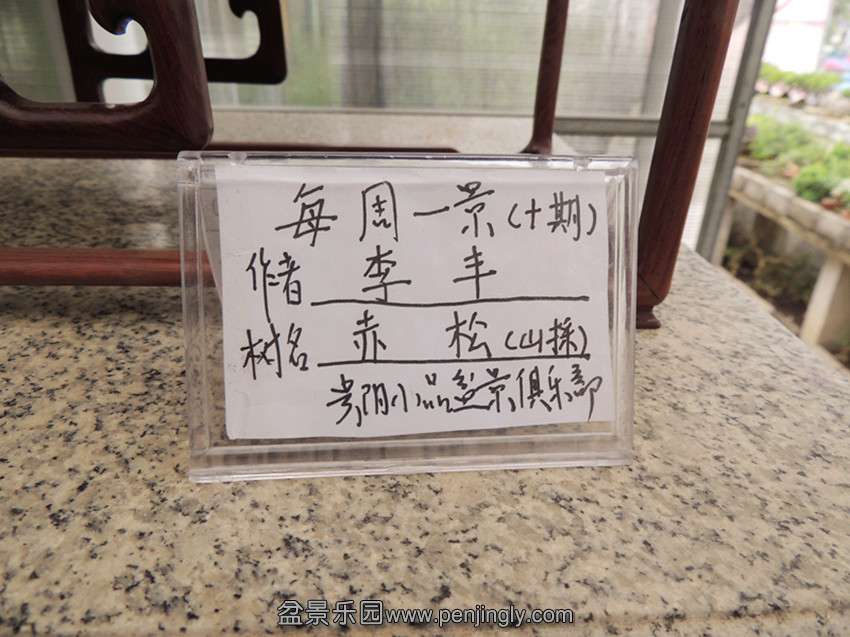 每周一景(十期)
作者 李丰
树名 赤松(山採)
贵阳小品盆景俱乐部
盆景乐园www.penjingly.com